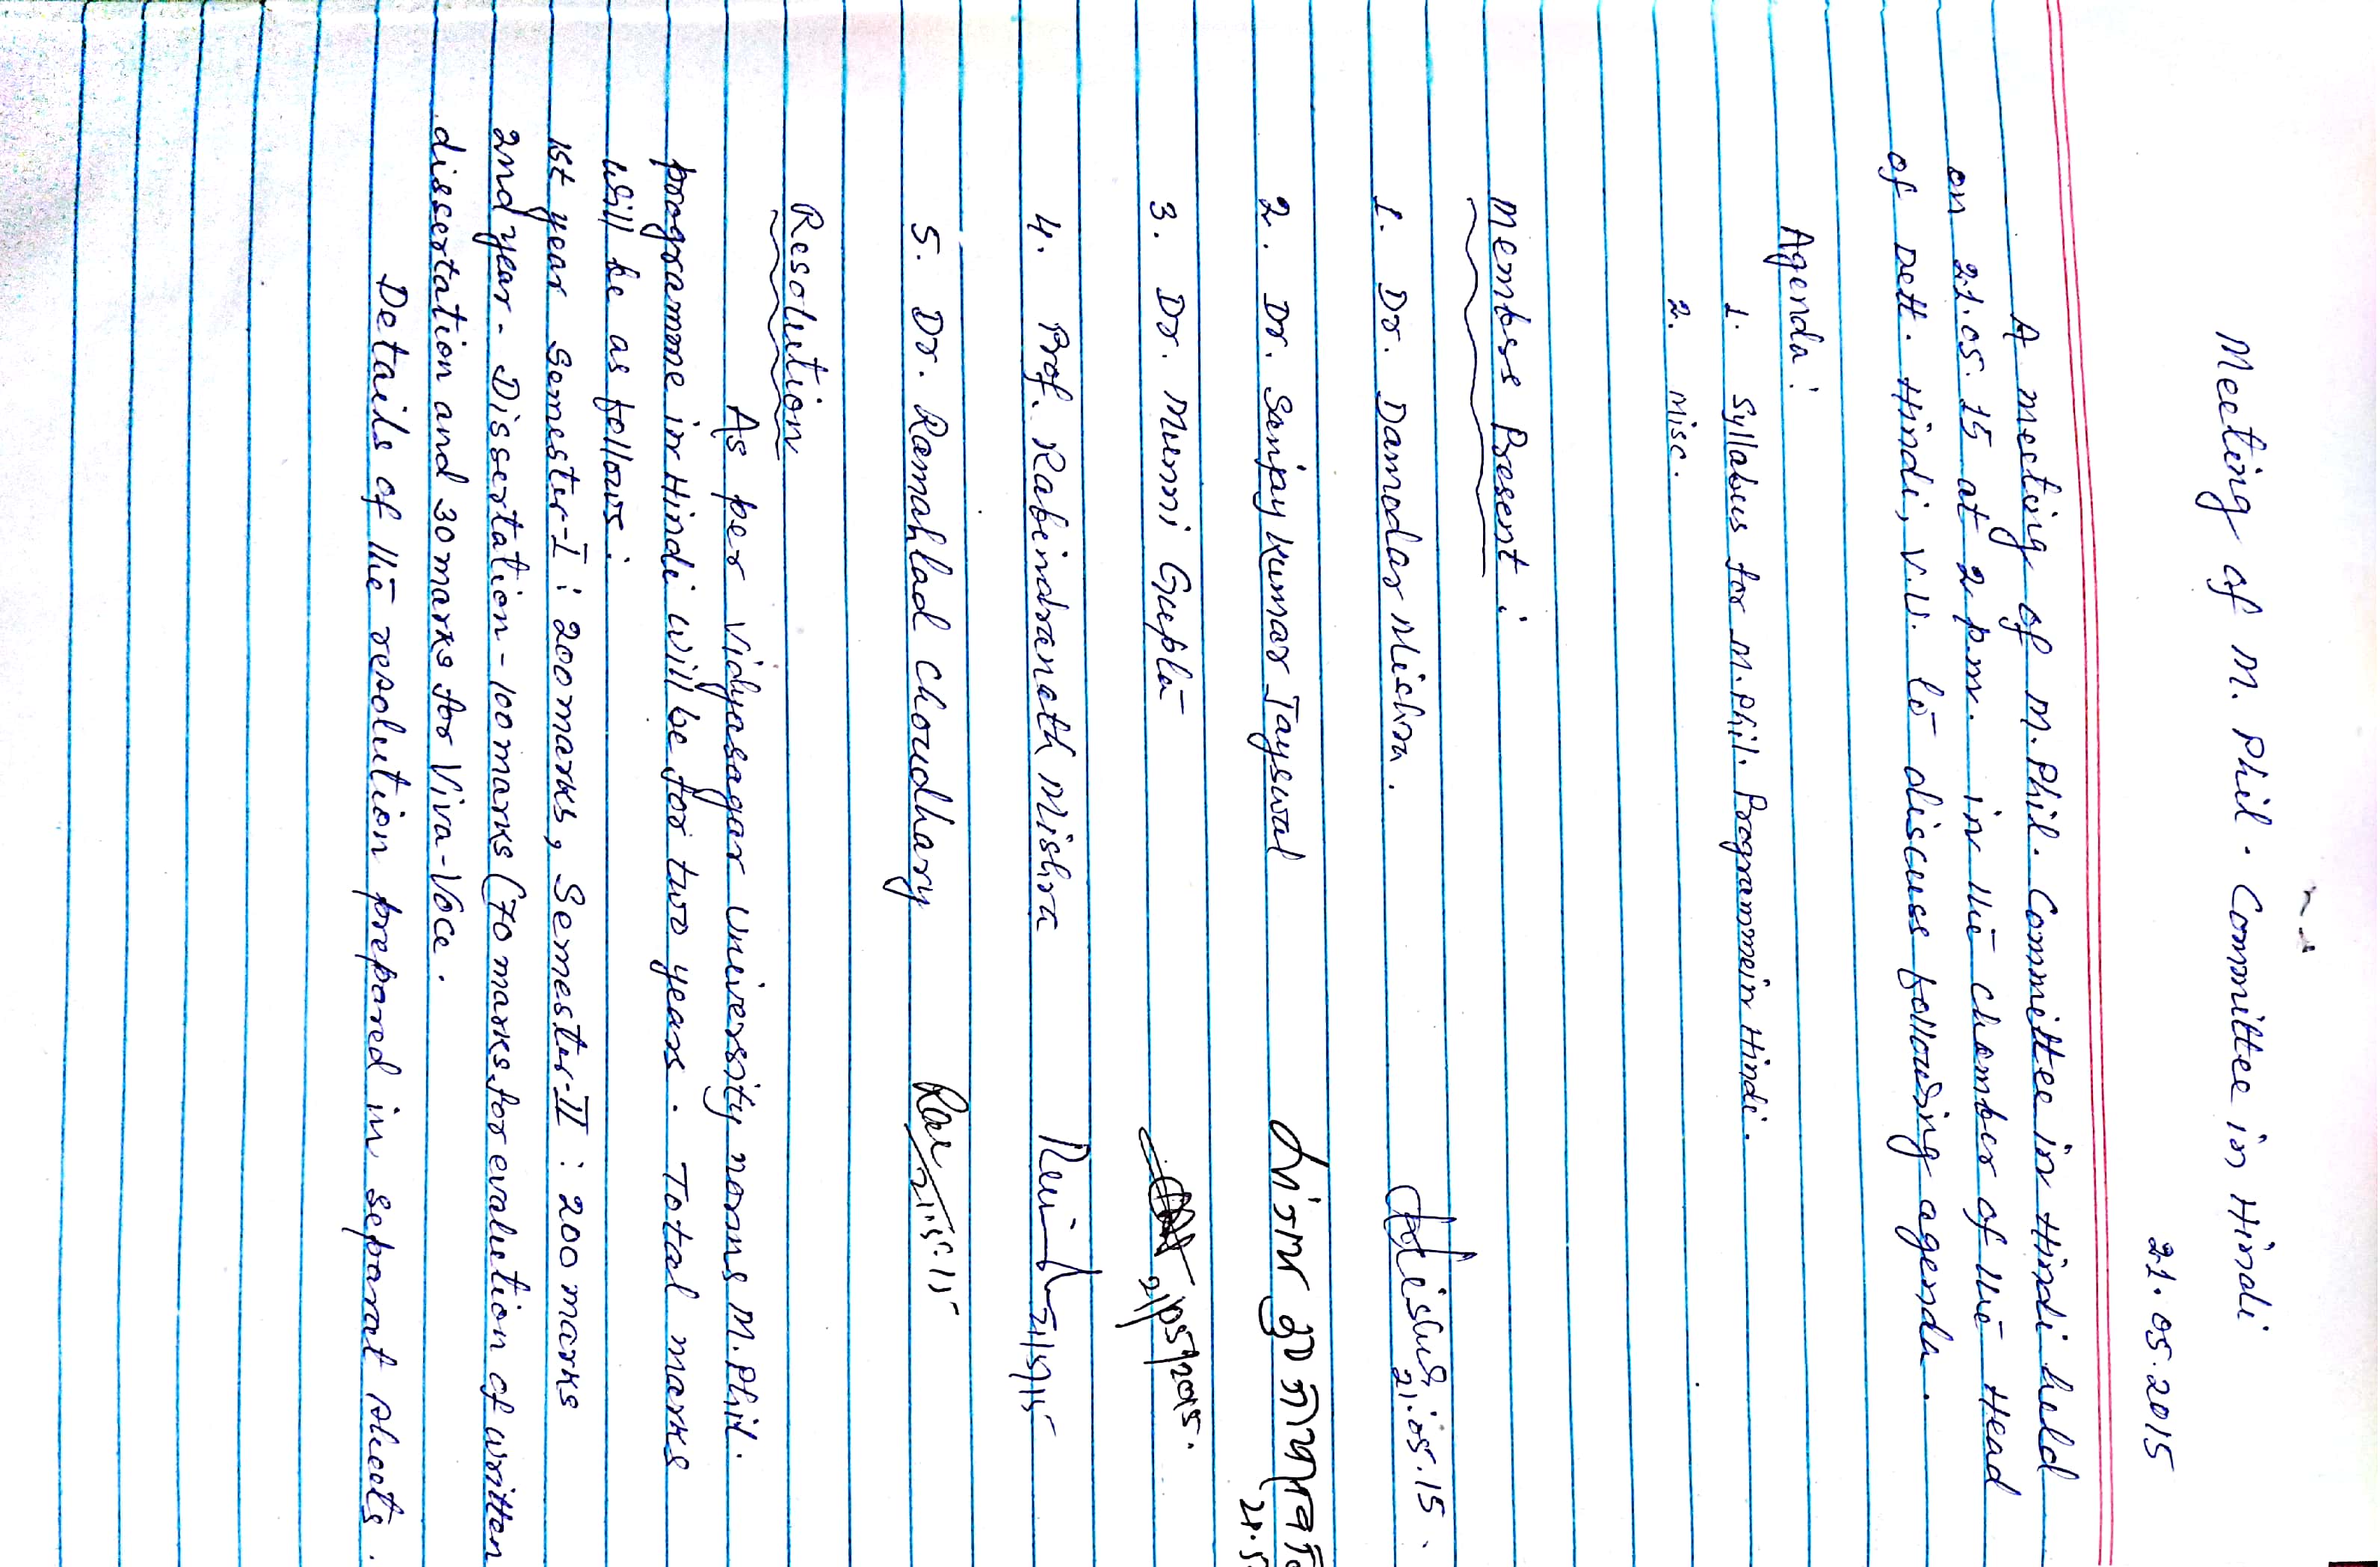 Meeting of M. Phil. Committee in Hindi
21.05.2015
A meeting of M.Phil. Committee in Hindi held
on 21.05.15 at 2 pm. in the chamber of the Head
of Dett. Hindi, V.U. to discuss following agenda.
Agenda:
1. Syllabus for M.Phil. Programme in Hindi.
2. Misc.
Members Present :
1. Dr. Damodar Mishra. 21.05.15.
2. Dr. Sanjay Kumar Jayswal
3. Dr. Munni Gupta 21/05/2015.
4. Prof. Rabindranath Mishra 21/5/15
5. Dr. Ramahlad Choudhary
Resolution
As per Vidyasagar University norms M.Phil.
programme in Hindi will be for two years. Total marks
will be as follows:
1st year Semester-I : 200 marks, Semester-II : 200 marks
2nd year - Dissertation - 100 marks (70 marks for evaluation of written
dissertation and 30 marks for Viva-Voce.
Details of the resolution prepared in separat sheets.